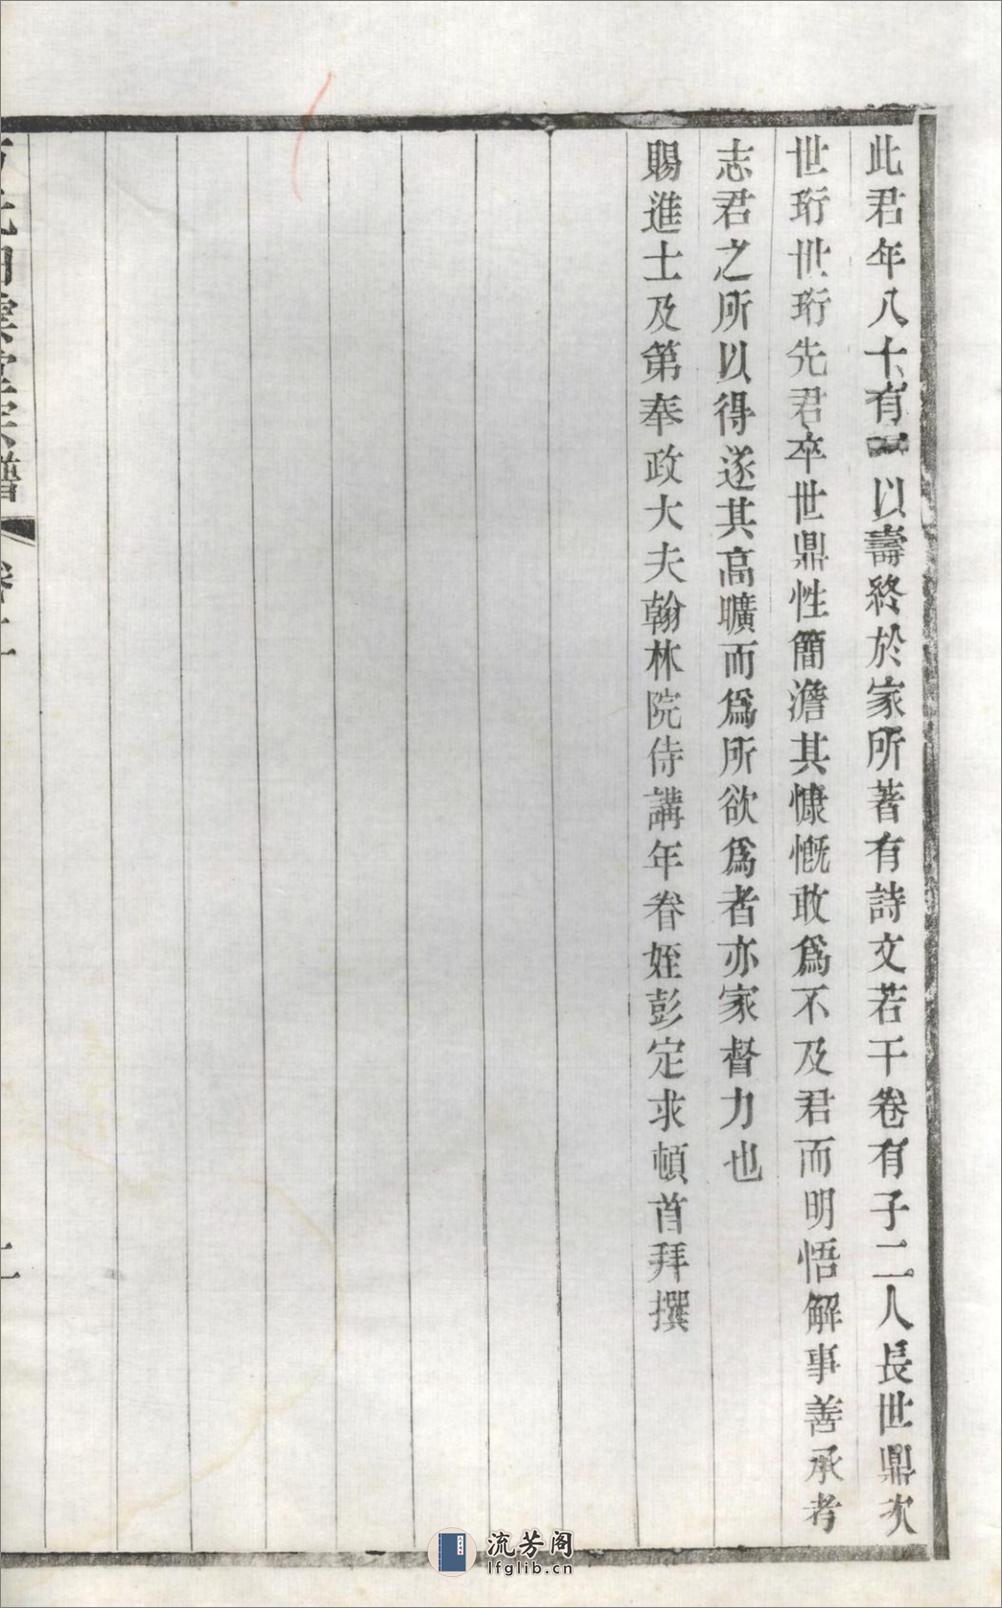 此君年八十有二以壽終於家所著有詩文若干卷有子二人長世鼎次
世珩世珩先君卒世鼎性簡澹其慷慨敢爲不及君而明悟解事善承考
志君之所以得遂其高曠而爲所欲爲者亦家督力也
賜進士及第奉政大夫翰林院侍講年眷姪彭定求頓首拜撰
宗譜
流芳阁
lfglib.cn